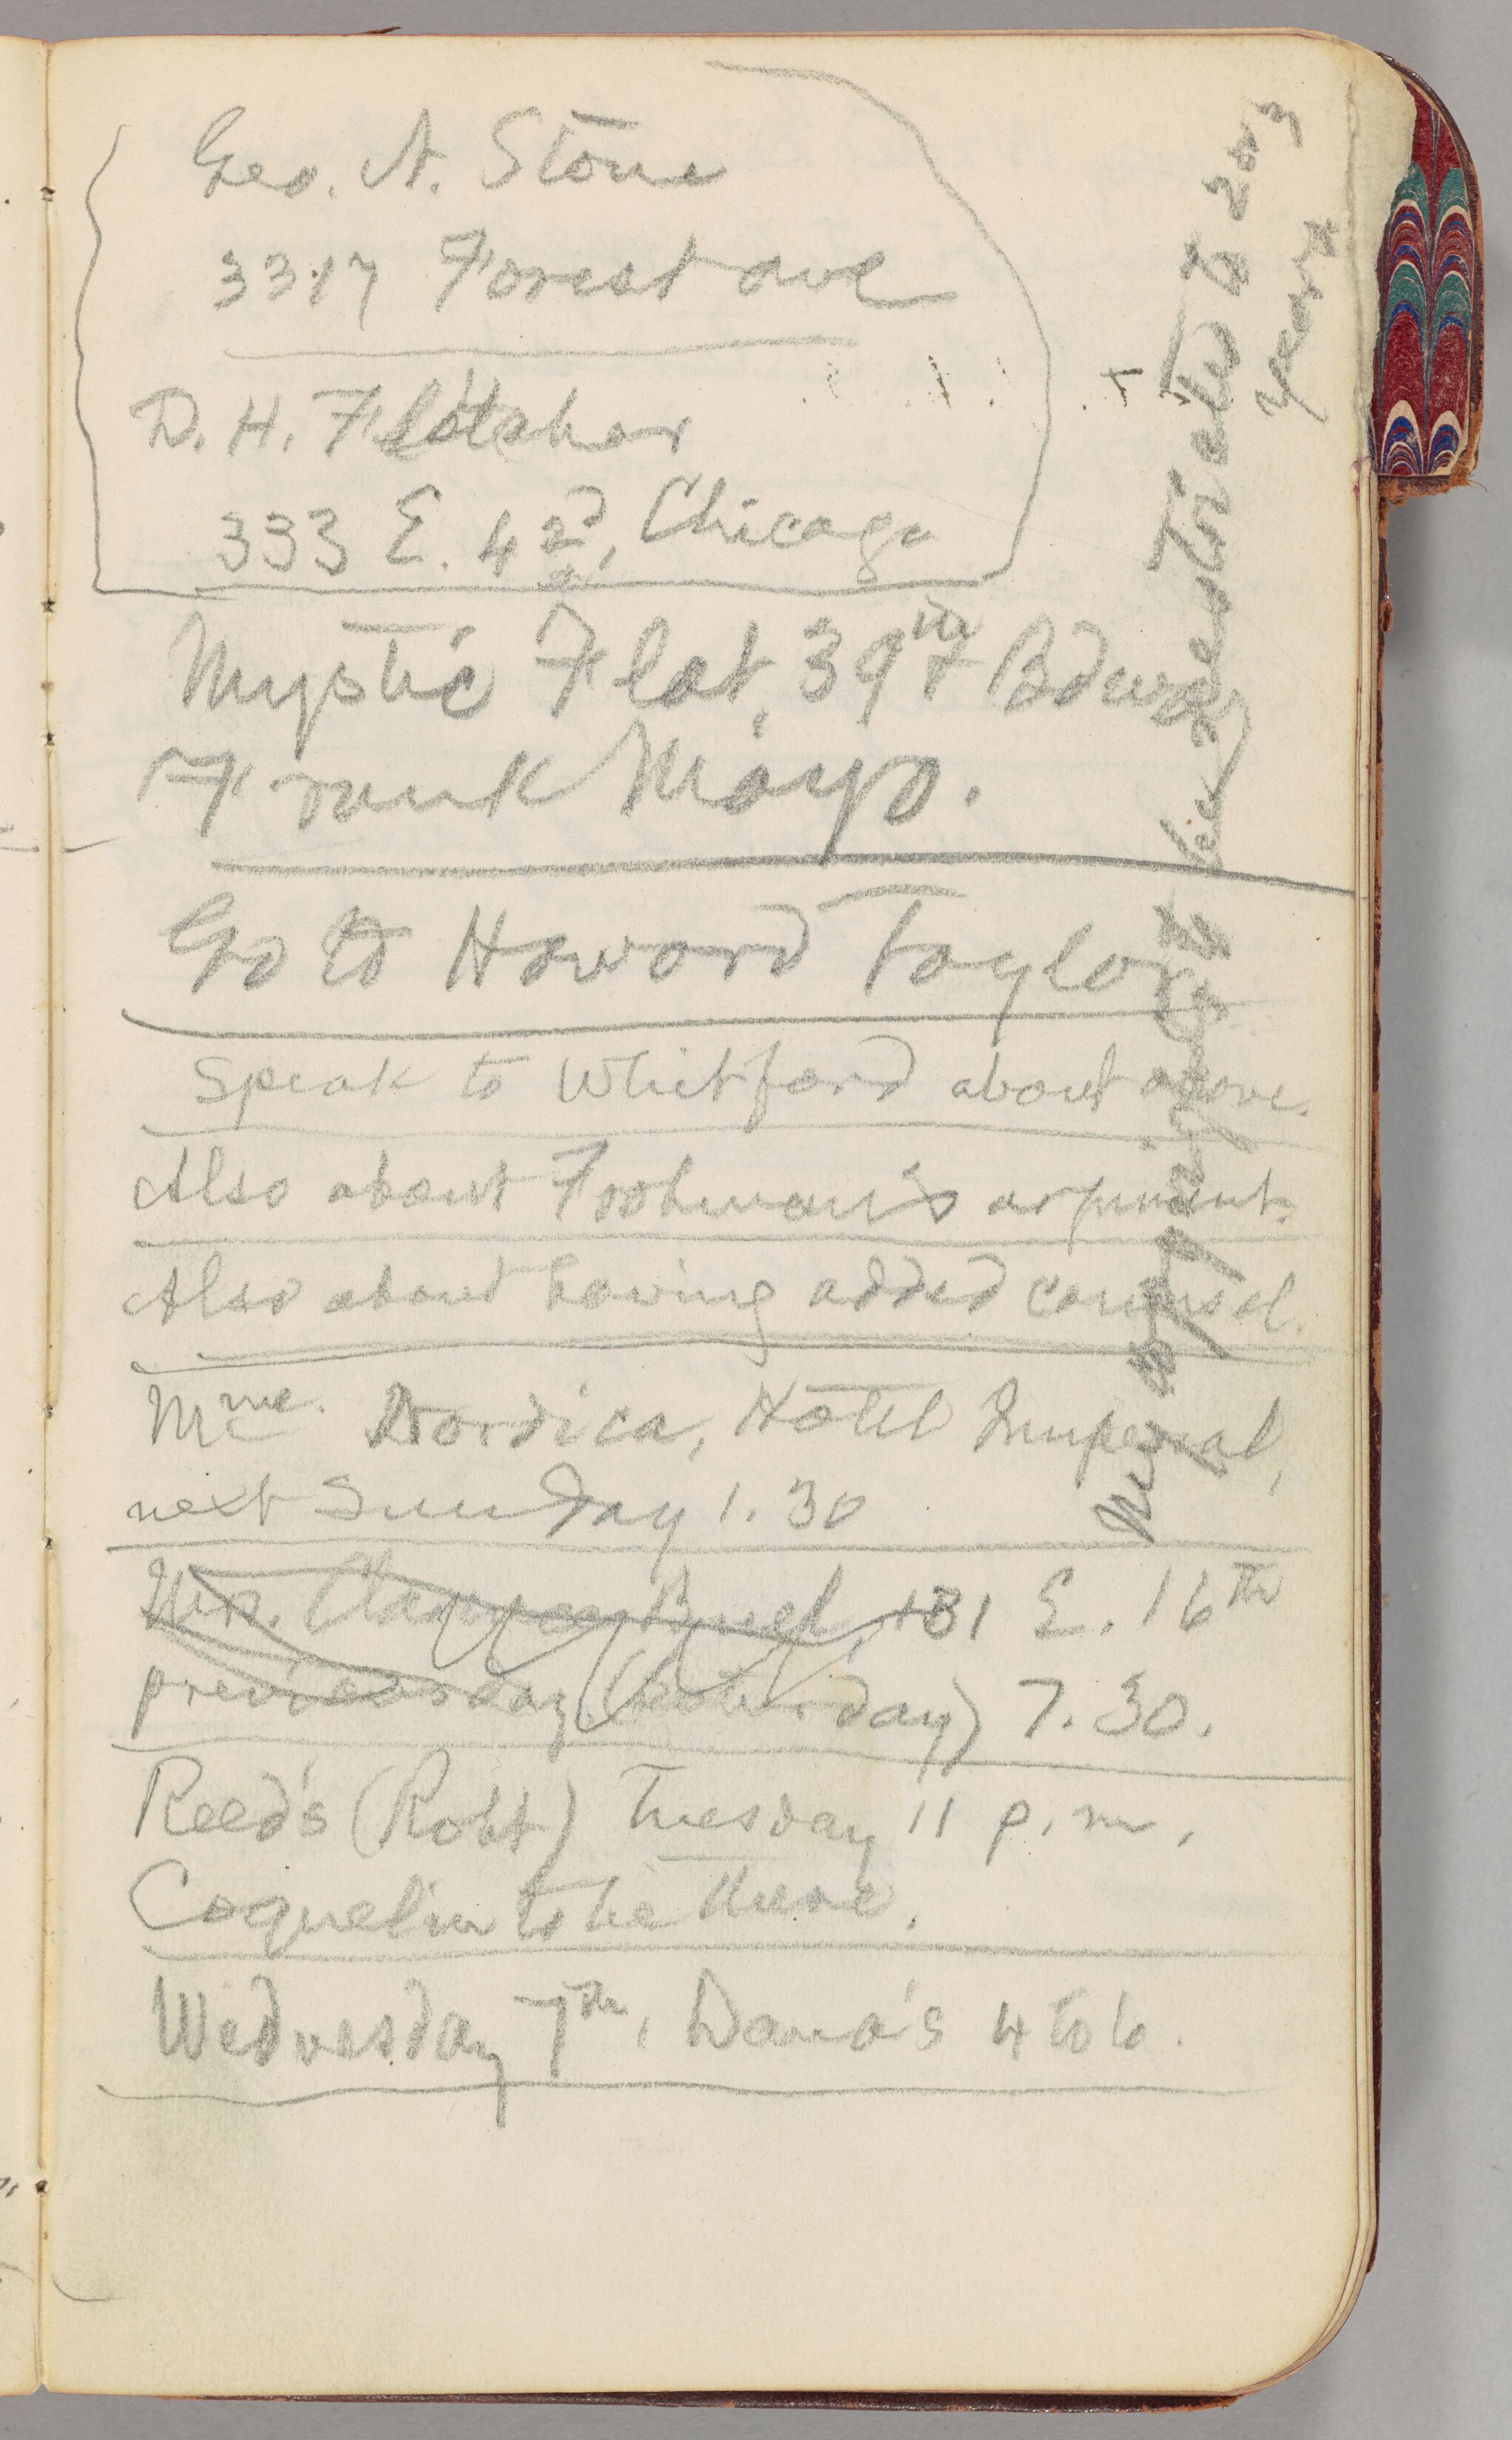 Geo. A. Stone
3317 Forest ave
D. H. Fletcher
333 E. 42d, Chicago
Mystic Flat, 39th & Bdway
Frank Mayo.
Go to Howard Taylor
Speak to Whitford about above.
Also about Frohman's argument.
Also about having added counsel.
Mme. Nordica, Hotel Imperial,
next Sunday 1.30
Mrs. Clarence Buel, 131 E. 16th
previous day (Saturday) 7.30.
Reed's (Robt) Tuesday 11 p.m.
Coquelin to be there.
Wednesday 7th, Dana's 4 to 6.
be 20
years